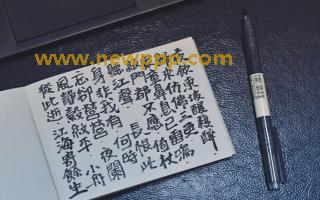 www.newppp.com
飲東坡醒復醉
來仿佛三更
童鼻息已
門都不應倚杖
聽江聲 長恨此
身非我有 何時
忘卻營營 夜闌
風靜縠紋平 小舟
從此逝 江海寄餘生